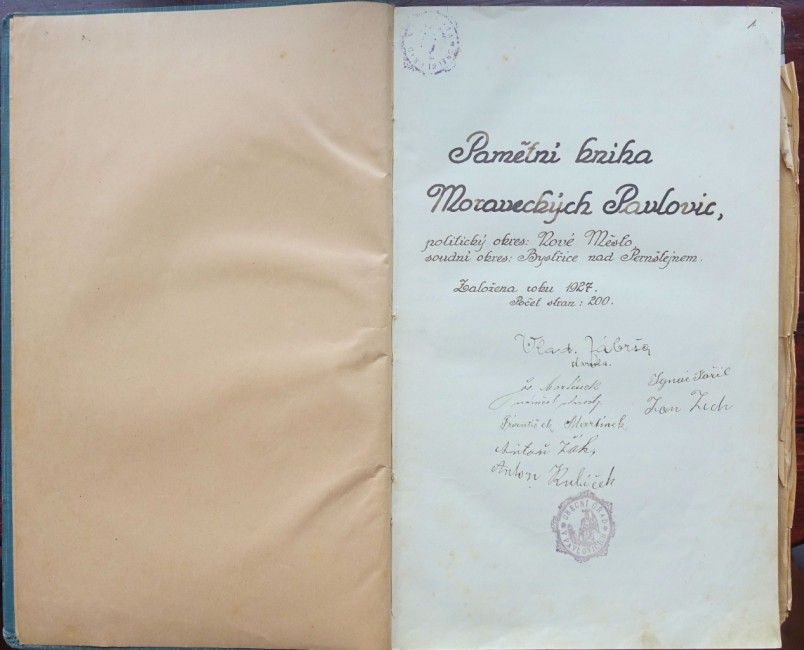 1
Pamětní kniha
Moraveckých Pavlovic,
politický okres: Nové Město,
soudní okres: Bystřice nad Pernštejnem.
Založena roku 1927.
Počet stran: 200.
Vlad. Jábrša
Ignác Pařil
Jan Zich
František Martinek
Antoň Žák,
Anton Kubíček
OBECNÍ ÚŘAD